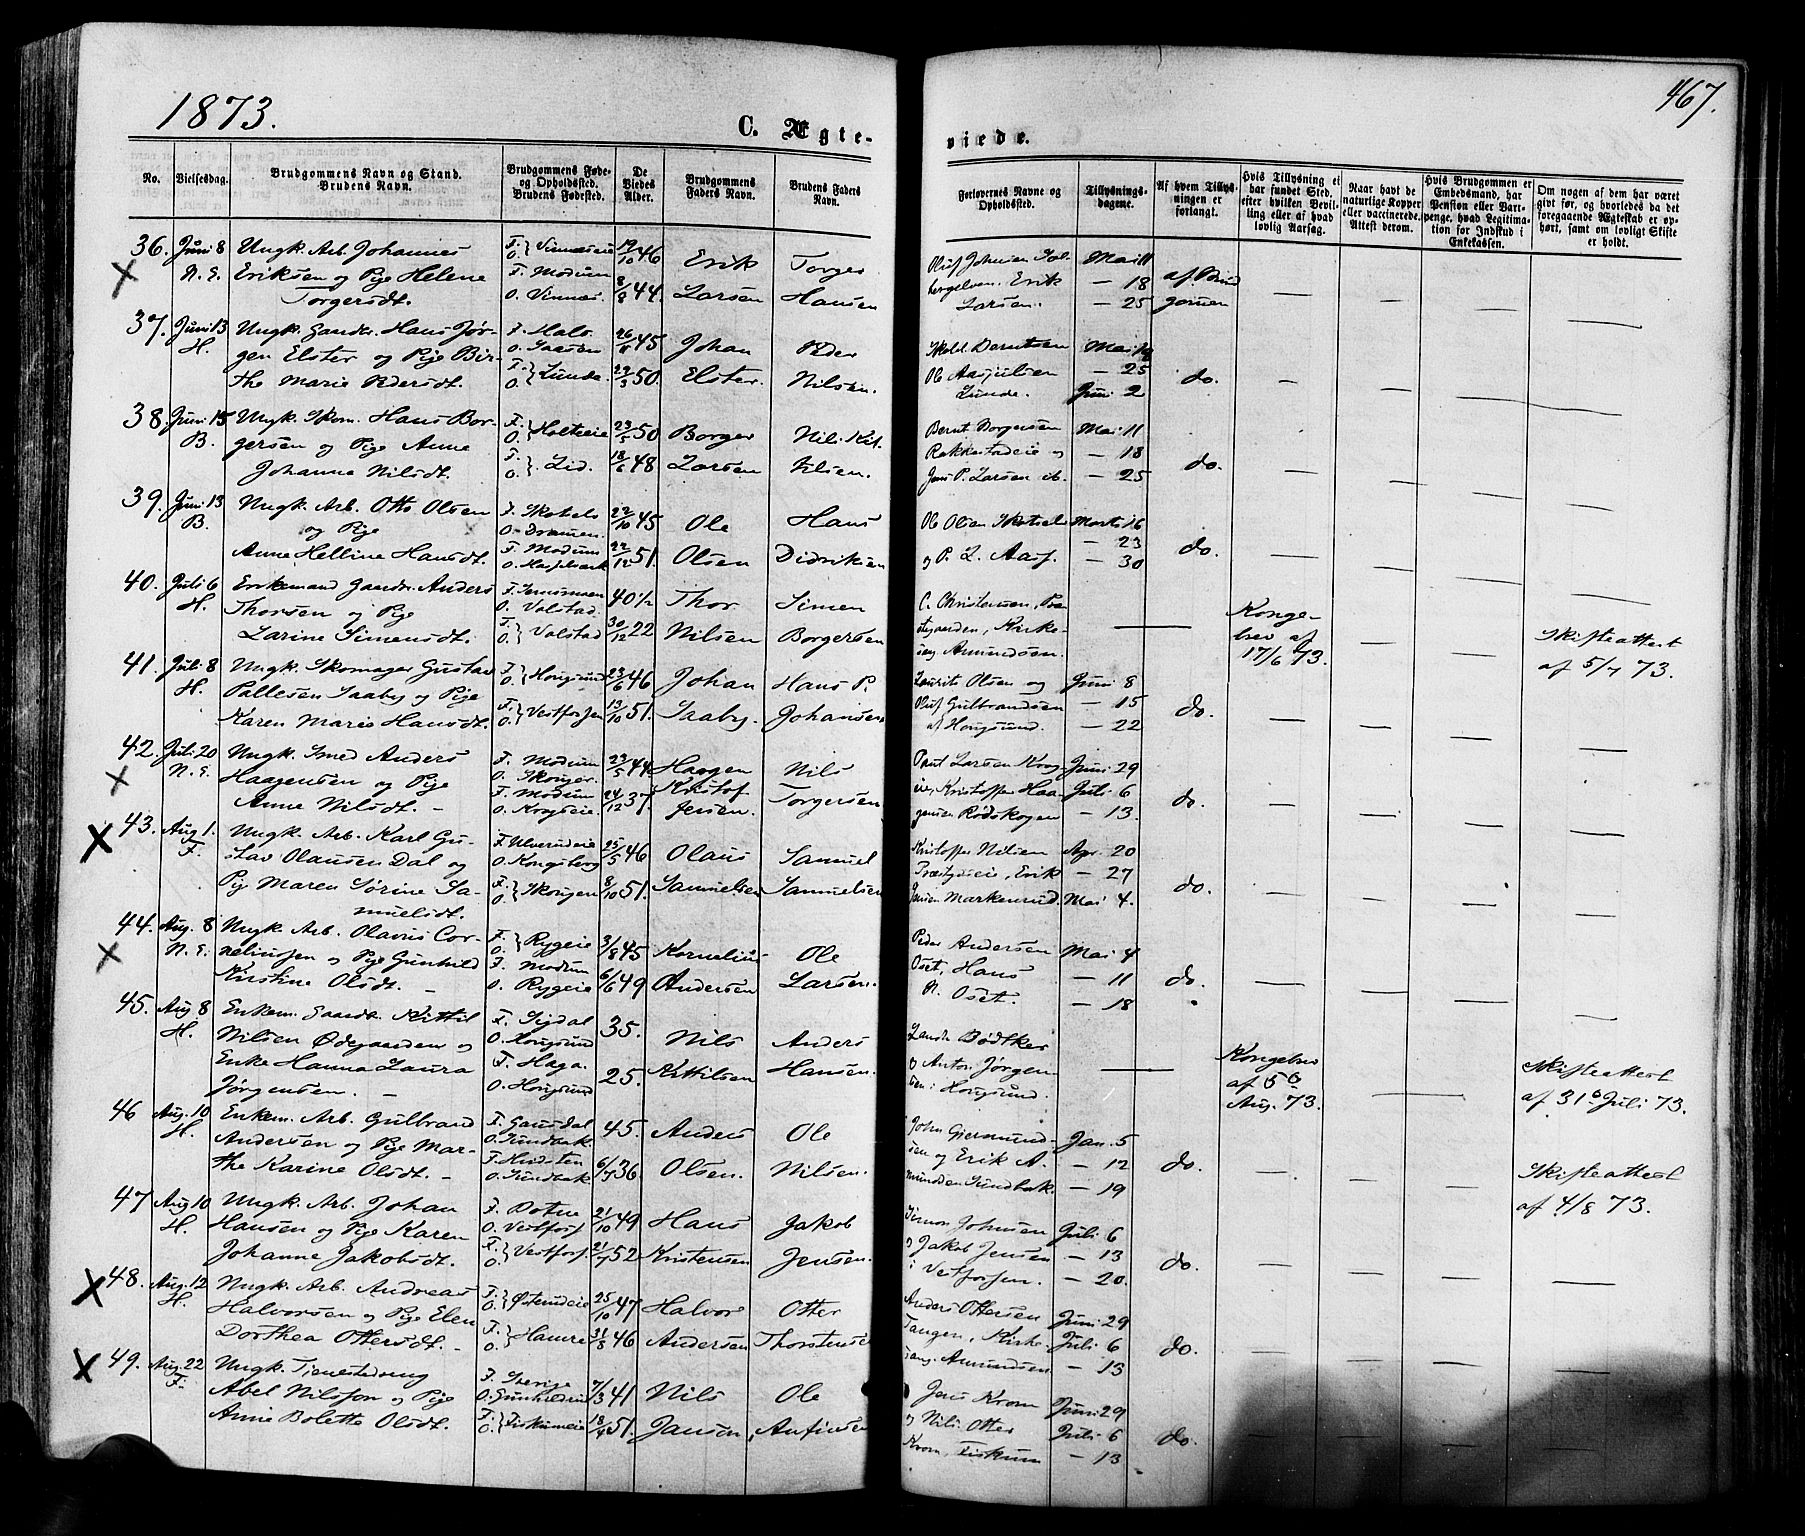 1873.
467.
C. Ægte-
viede.
No.
Vielsesdag.
Brudgommens Navn og Stand.
Brudens Navn.
Brudgommens Føde-
og Opholdssted.
Brudens Fødested.
De
Viedes
Alder.
Brudgommens
Faders Navn.
Brudens Faders
Navn.
Forlovernes Navne og
Opholdssted.
Tillysnings-
dagene.
Af hvem Tillys-
ningen er
forlangt.
Hvis Tillysning ei
har fundet Sted,
efter hvilken Bevil-
ling eller af hvad
lovlig Aarsag.
Naar havt de
naturlige Kopper
eller vaccinerede.
Attest derom.
Hvis Brudgommen er
Embedsmand, har
Pension eller Vart-
penge, hvad Legitima-
tion for Indskud i
Enkekassen.
Om nogen af dem har været
givt før, og hvorledes da det
foregaaende Ægteskab er op-
hørt, samt om lovligt Skifte
er holdt.
36. Juni 8 Ungk. Arb. Johannes F. } Vinnæseie 19/10 46 Erik Torger
N. E. Eriksen og Pige Helene F. Modum Larsen Hansen
Torgersdt. O. Vinnæs. 8/8 44.
Mai 11 af Brud
Erik — 18 gommen
Larsen. — 25
37. Juni 13 Ungk. Gaardbr. Hans Jør- 26/11 45 Johan Peder
H. gen Elster og Pige Bir- F. } Lunde Elster. Nilsen.
the Marie Pedersdt. O. 50.
Berntsen Mai
Ole Aasjulsen — 25 do.
Lunde. Juni 2
38. Juni 15 Ungk. Skom. Hans Bor- F. } Holteeie 23/5 50 Borger Nils
B. gersen og Pige Anne F. } Lid. 18/6 48 Larsen
Johanne Nilsdt. O.
Bernt Borgersen Mai 11
Rakkestadeie og — 18 do.
Jens P. Larsen ib. — 25
39. Juni 13 Ungk. Arb. Otto Olsen F. Skotsels 22/10 45 Ole Hans
B. og Pige O. Dramen.
Anne Helline Hansdt. F. Modum 22/12 51. Olsen Didriksen
Ole Olsen Skotsel Marts 16
— 23 do.
og P. L. Aass. — 30
40. Juli 6 Enkemand Gaardbr. Anders 40 1/2 Thor Simen
H. Thorsen og Pige O. Valstad.
Larine Simensdt. F. } Valstad 30/12 22 Nilsen Borgersen
C. Christensen, Præ-
stegaarden, Kirke-
sang Amundsen.
Konge-
brev af
17/6 73.
Skifteattest
af 5/7 73.
41. Juli 8 Ungk. Skomager Gustav F. } Hougsund 23/6 46 Johan Hans P.
H. Pallesen Saaby og Pige Saaby. Johansen
Karen Marie Hansdt. F. } Vestfossen 13/10 51.
Laurits Olsen og Juni 8
Oluf Gulbrandsen — 15 do.
af Hougsund. — 22
42. Juli 20 Ungk. Smed Anders F. Modum 23/5 44 Haagen Nils
N. E. Haagensen og Pige O. Skouger. Kristof
Anne Nilsdt. F. Modum 24/12 37. Jensen. Torgersen
Paul Larsen Krog- Juni 29
eie, Kristoffer Haa- Juli 6 do.
gensen Rødskogen — 13
43. Aug. 1. Ungk. Arb. Karl Gu- F. Ulverudeie 25/5 46 Olaus Samuel
F. stav Olausen Dal og O. Kongsberg
Pige Maren Sørine Sa- F. } Skougen 8/10 51. Samuelsen Samuelsen
muelsdt.
Kristoffer Nilsen Apr. 20
Præstegdseie, Erik — 27 do.
Jensen Markerud. Mai 4.
44. Aug. 8 Ungk. Arb. Olavus Cor- F. } Rygeie 3/8 45 Kornelius Ole
N. E. neliussen og Pige Gunhild F. Modum
Kirstine Olsdt. O. Rygeie 6/6 49 Andersen Larsen.
Peder Andersen Mai 4
Oset, Hans — 11 do.
N. Oset. — 18
45. Aug. 8 Enkem. Gaardbr. Kittil F. Sigdal 35. Nils Anders
H. Nilsen Ødegaarden og O. Hougsund
Enke Hanna Laura F. Haga 25. Kittilsen Hansen.
Jørgensen. O. Hougsund
Bødtker
og Anton Jørgen-
sen i Hougsund.
Kongebrev
af 5te
Aug. 73.
Skifteattest
af 31te Juli 73.
46 Aug. 10 Enkem. Arb. Gulbrand F. Gausdal 45. Anders Ole
H. Andersen og Pige Mar- O. Sundbak.
the Karine Olsdt. 6/7 36 Olsen. Nilsen.
O. Sundbak
John Giermund- Jan. 5
sen og Erik A- — 12 do.
mundsen Sundbak. — 19
Skifteattest
af 4/8 73.
47 Aug. 10 Ungk. Arb. Johan 21/10 49 Hans Jakob
H. Hansen og Pige Karen O. Vestfoss.
Johanne Jakobsdt. F. } Vestfoss. 21/7 52 Kristensen Jensen.
Simon Johnsen Juli 6
og Jakob Jensen — 13 do.
i Vestfossen. — 20.
48. Aug. 12 Ungk. Arb. Andreas F. } Østerudeie 25/10 47 Halvor Otter
H. Halvorsen og Pige Elen
Dorthea Ottersdt. F. } Hamre 31/8 46 Andersen Thorstensen
Anders Ottersen Juni 29
Tangen, Kirke- Juli 6 do.
sang. Amundsen — 13
49. Aug. 22 Ungk. Tjenestedreng F. Sverige 7/3 41 Nils Ole
F. Abel Nilsson og Pige
Anne Bolette Olsdt. F. } Fiskumeie 18/4 51. Jansen. Anfinsen
Jens Krom Juni 29
og Nils Otter Juli 6 do.
Krom, Fiskum — 13